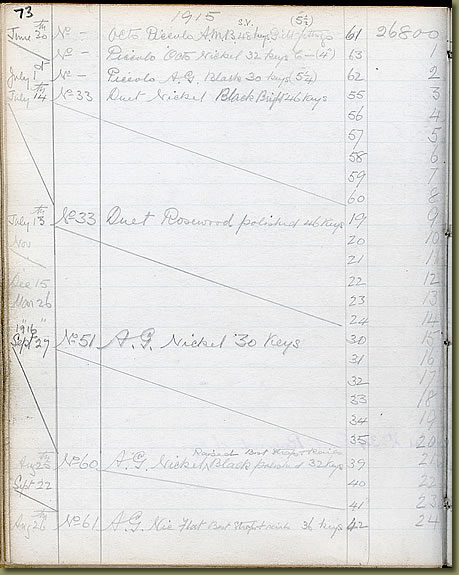 73 1915
June 30th No - Octo Piccolo AMB 48 keys S.V. (5¼) 61 26800
No - Piccolo Octo Nickel 32 keys 63 1
July 1st No - Piccolo A.G. Black 30 keys (5¼) 62 2
July 14th No 33 Duet Nickel Black Bright 46 Keys 55 3
56 4
57 5
58 6
59 7
60 8
July 13th No 33 Duet Rosewood polished 46 Keys 19 9
Nov 20 10
21 11
Dec 15 22 12
Mar 26 23 13
24 14
1916
Sept 27 No 51 A.G. Nickel 30 Keys 30 15
31 16
32 17
33 18
34 19
35 20
Raised Best Straps &
Aug No 60 A.G. Nickel Black polished 32 keys 39 21
Sept 22 40 22
41 23
Aug 26th No 61 A.G. Nic Flat Best Strap & 36 keys 42 24